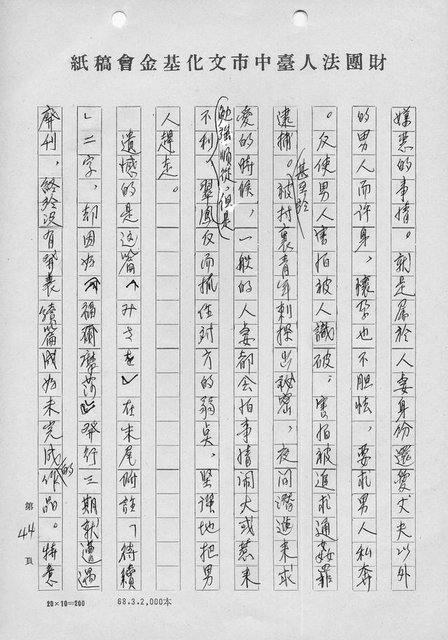 財團法人臺中市文化基金會稿紙
嫌惡的事情。就是屬於人妻身份還愛丈夫以外
的男人而許身,懷孕也不胆怯,要求男人私奔
。反使男人害怕被人識破,害怕被追求通姦罪
逮捕。甚至於被村裏青年刺探出秘密,夜間潛進來求
愛的時候,一般的人妻都会怕事情鬧大或惹來
不利,勉強順從,但是翠鳳反而抓住对方的弱点,堅强地把男
人趕走。
遺憾的是這篇「みさを」在末尾附註「待續
」二字,却因如「福爾摩莎」発行三期就遭遇
廃刊,終於没有発表續篇成如未完成的作品。特意
第44頁
20×10=200
68.3.2,000本